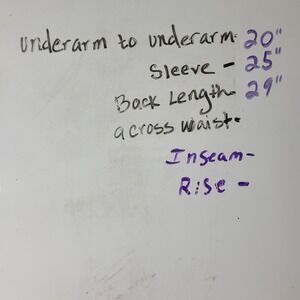 underarm to underarm- 20"
Sleeve - 25"
Back Length- 29"
across waist-
Inseam-
Rise -